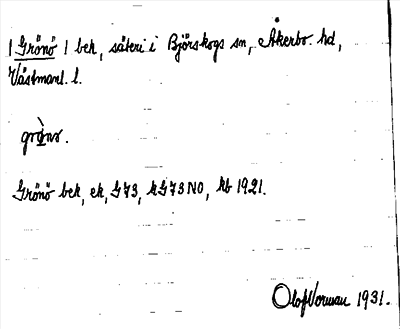 1 Grönö 1 beh, säteri i Björskogs sn, Åkerbo hd,
Västmanl. l.
Grönö beh, ek, G73, kG73NO, kb 1921.
Olof Vorman 1931.